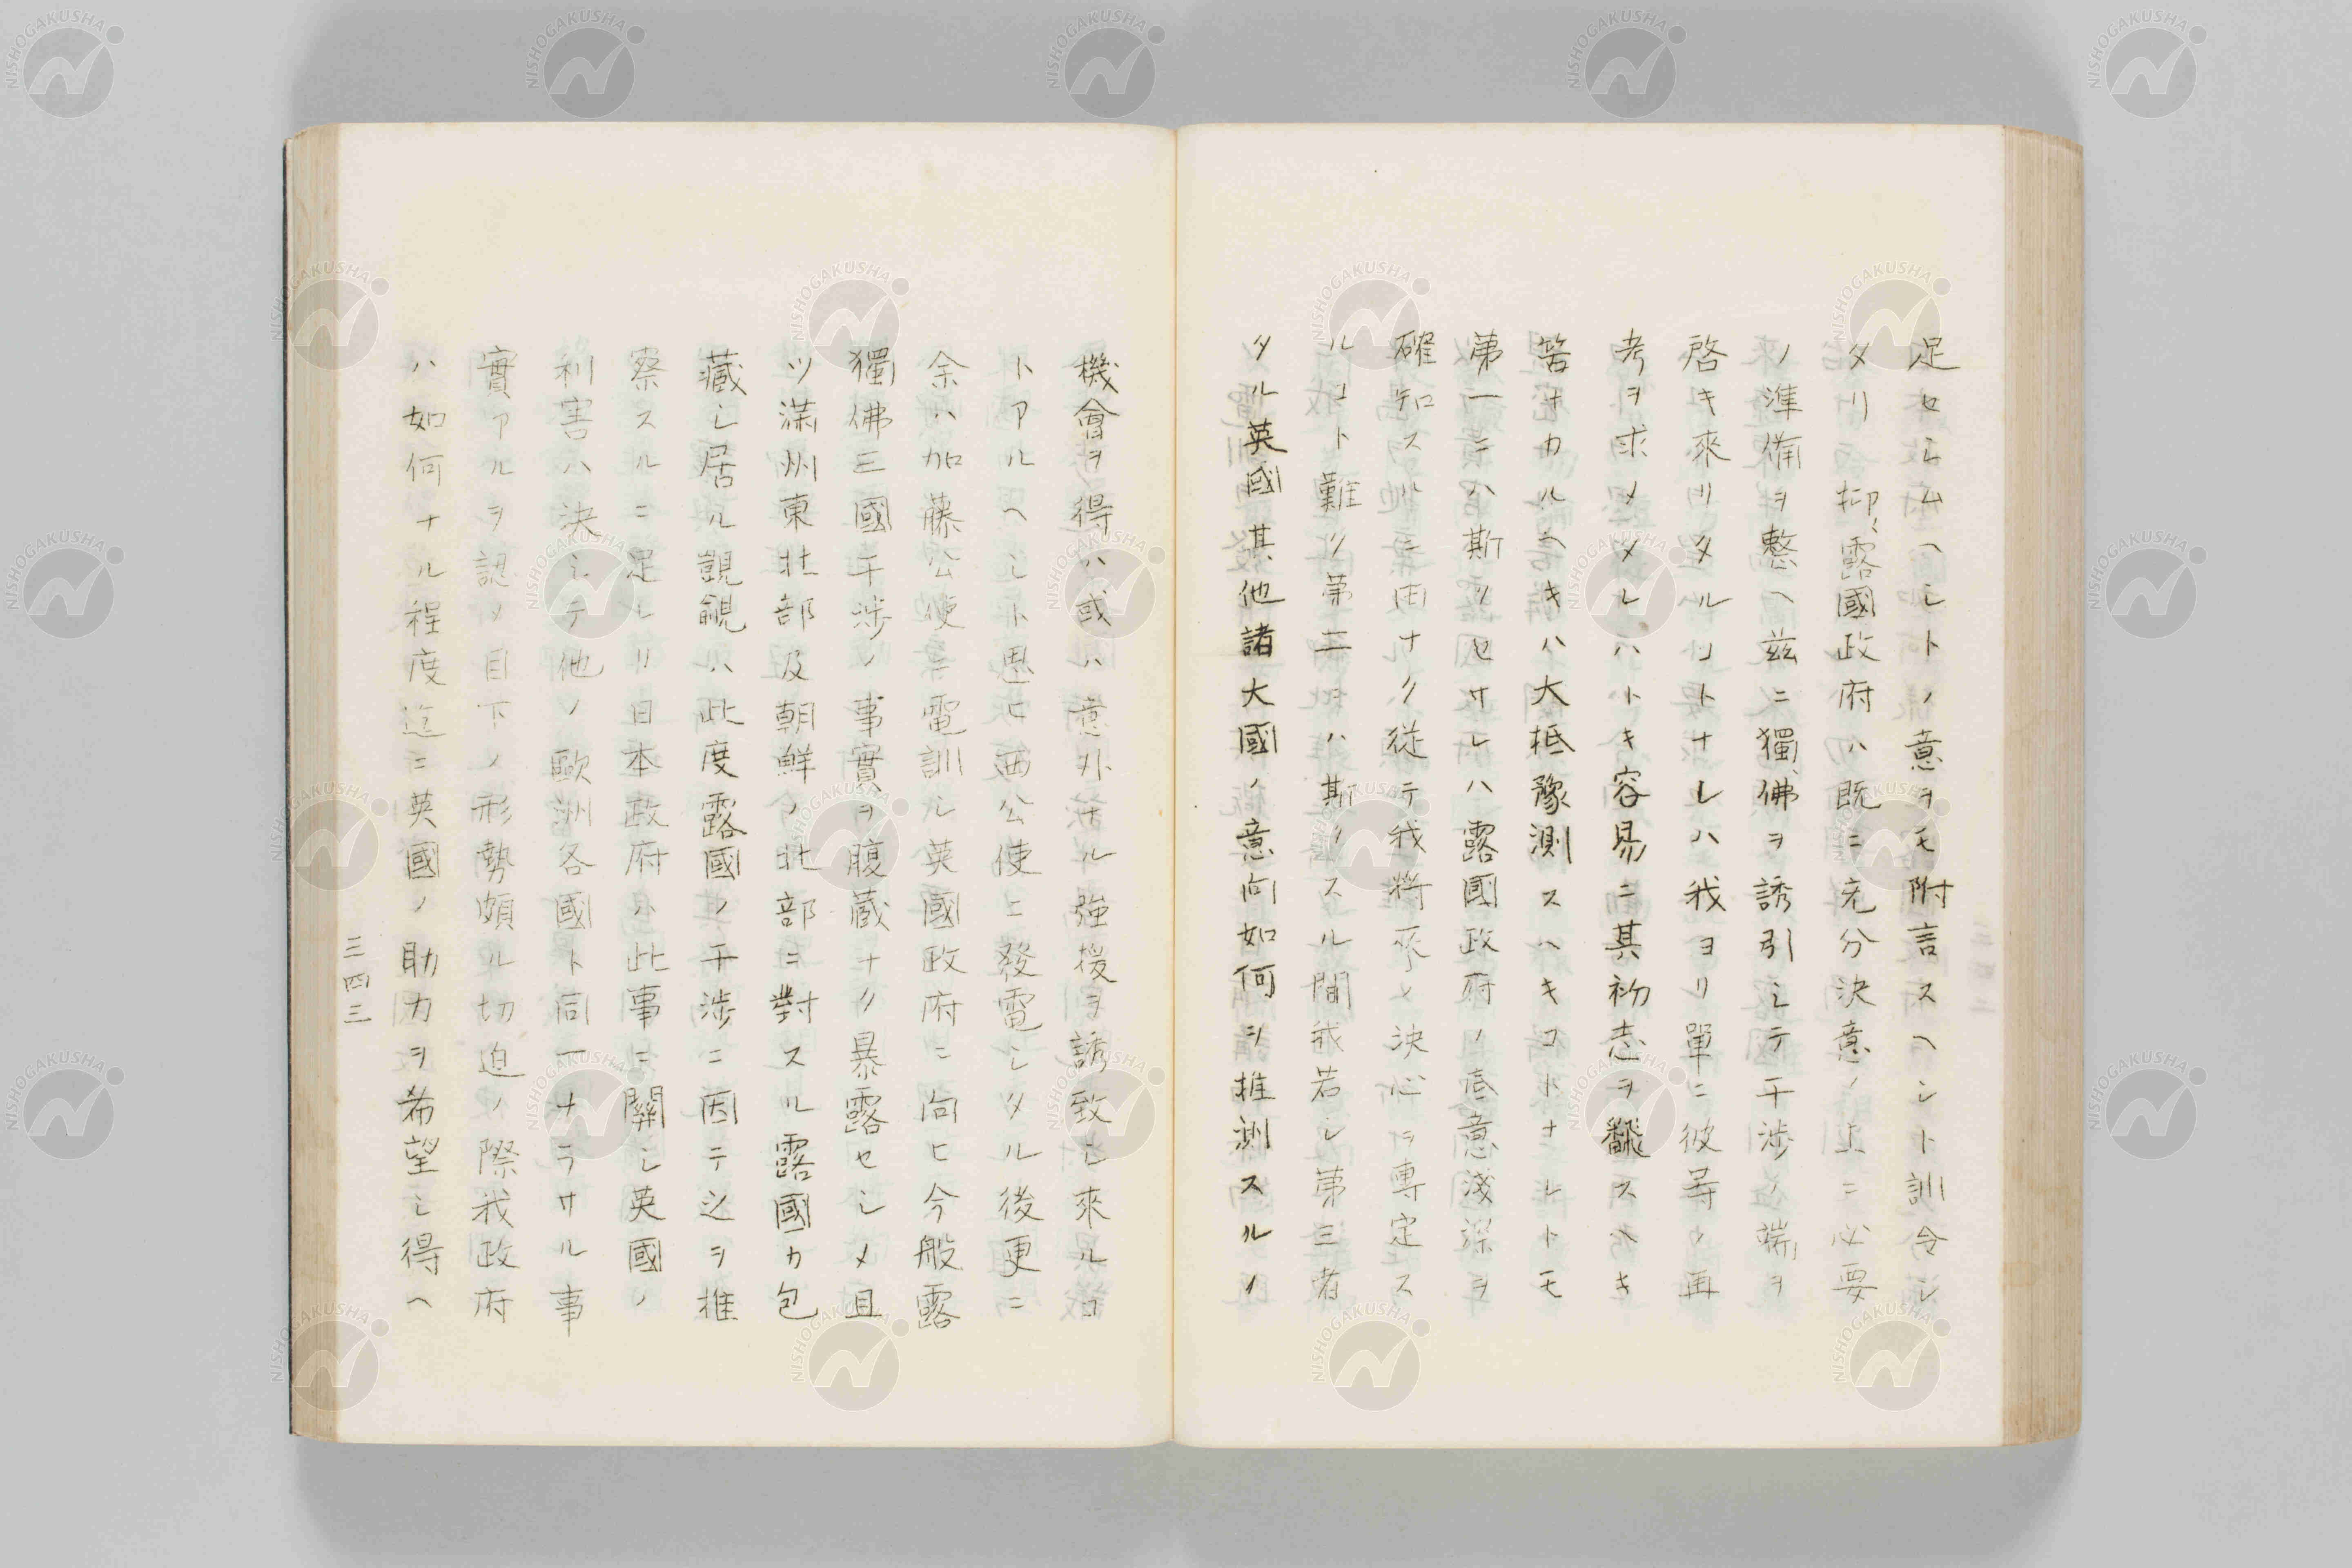 足セシムヘシトノ意ヲモ附言スヘシト訓令シ
タリ抑〻露國政府ハ既ニ充分決意ノ上ニ必要
ノ準備ヲ整ヘ茲ニ獨、佛ヲ誘引シテ干渉ノ端ヲ
啓キ來リタルコトナレハ我ヨリ單ニ彼等ノ再
考ヲ求メタレハトキ容易ニ其初志ヲ飜スヘキ
筈ナカルヘキハ大抵豫測スヘキコトナレトモ
第一ニハ斯クセサレハ露國政府ノ底意淺深ヲ
確知スルニ由ナク從テ我將來ノ決心ヲ專定ス
ルコト難ク第二ニハ斯クスル間我若シ第三者
タル英國其他諸大國ノ意向如何ヲ推測スルノ
機會ヲ得ハ或ハ意外ナル強援ヲ誘致シ來ルコ
トアルヘシト思ヒ西公使ニ發電シタル後更ニ
余ハ加藤公使ニ電訓シ英國政府ニ向ヒ今般露
獨佛三國干渉ノ事實ヲ腹蔵ナク暴露セシメ且
ツ滿州東北部及朝鮮ノ北部ニ對スル露國カ包
藏シ居ル覬覦ハ此度露國ノ干渉ニ因テ之ヲ推
察スルニ足レリ日本政府ハ此事ニ關シ英國ノ
利害ハ決シテ他ノ歐洲各國ト同一ナラサル事
實アルヲ認メ目下ノ形勢頗ル切迫ノ際我政府
ハ如何ナル程度迄ニ英國ノ助力ヲ希望シ得ヘ
三四三
NISHOGAKUSHA